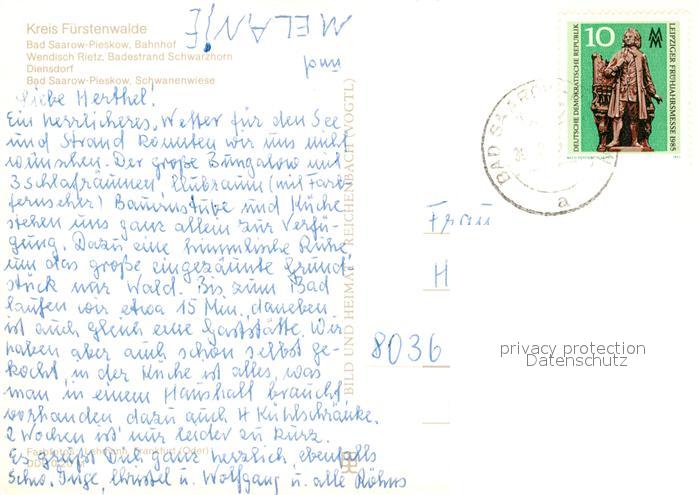 Kreis Fürstenwalde
Bad Saarow-Pieskow, Bahnhof
Wendisch Rietz, Badestrand Schwarzhorn
Diensdorf
Bad Saarow-Pieskow, Schwanenwiese
und
MELANIE
Liebe Herthel!
Ein herrlicheres Wetter für den See
und Strand könnten wir uns nicht
wünschen. Der große Bungalow mit
3 Schlafräumen, Clubraum (mit Farb-
fernseher) Bauernstube und Küche
stehen uns ganz allein zur Verfü-
gung. Dazu eine himmlische Ruhe,
um das große eingezäunte Grund-
stück nur Wald. Bis zum Bad
laufen wir etwa 15 Min., daneben
ist auch gleich eine Gaststätte. Wir
haben aber auch schon selbst ge-
kocht, in der Küche ist alles, was
man in einem Haushalt braucht
vorhanden dazu auch 4 Kühlschränke.
2 Wochen ist nur leider zu kurz.
Es grüßt Dich ganz herzlich ebenfalls
Schw. Inge, Christel u. Wolfgang u. alle Röhrs
Frankfurt (Oder)
BILD UND HEIMAT REICHENBACH (VOGTL)
DEUTSCHE DEMOKRATISCHE REPUBLIK
10
LEIPZIGER FRÜHJAHRSMESSE 1985
BAD SAAROW
a
Frau
H
8036
privacy protection
Datenschutz